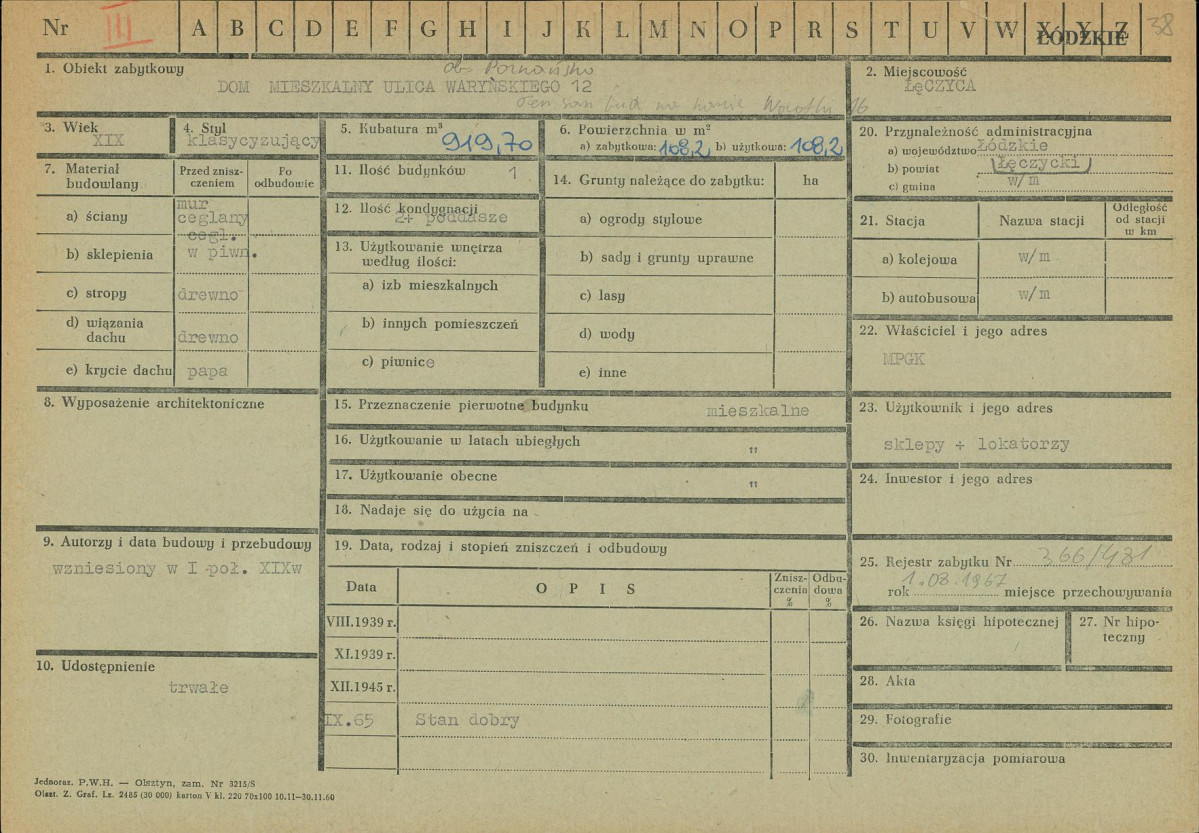 Nr III A B C D E F G H I J K L M N O P R S T U V W X Y Z 38
ŁÓDZKIE
1. Obiekt zabytkowy
DOM MIESZKALNY ULICA WARYŃSKIEGO 12
2. Miejscowość
ŁĘCZYCA
3. Wiek
XIX
4. Styl
klasycyzujący
5. Kubatura m³
919,70
6. Powierzchnia w m²
a) zabytkowa: 108,2 b) użytkowa: 108,2
7. Materiał budowlany
Przed zniszczeniem
Po odbudowie
a) ściany
mur ceglany
b) sklepienia
cegl. w piwn.
c) stropy
drewno
d) wiązania dachu
drewno
e) krycie dachu
papa
8. Wyposażenie architektoniczne
9. Autorzy i data budowy i przebudowy
wzniesiony w I poł. XIXw
10. Udostępnienie
trwałe
11. Ilość budynków 1
12. Ilość kondygnacji
2+ poddasze
13. Użytkowanie wnętrza
według ilości:
a) izb mieszkalnych
b) innych pomieszczeń
c) piwnice
14. Grunty należące do zabytku: ha
a) ogrody stylowe
b) sady i grunty uprawne
c) lasy
d) wody
e) inne
15. Przeznaczenie pierwotne budynku mieszkalne
16. Użytkowanie w latach ubiegłych "
17. Użytkowanie obecne "
18. Nadaje się do użycia na
19. Data, rodzaj i stopień zniszczeń i odbudowy
Data
OPIS
Zniszczenia %
Odbudowa %
VIII.1939 r.
XI.1939 r.
XII.1945 r.
IX.65 Stan dobry
20. Przynależność administracyjna
a) województwo Łódzkie
b) powiat Łęczycki
c) gmina w/m
21. Stacja
Nazwa stacji
Odległość od stacji w km
a) kolejowa w/m
b) autobusowa w/m
22. Właściciel i jego adres
MPGK
23. Użytkownik i jego adres
sklepy + lokatorzy
24. Inwestor i jego adres
25. Rejestr zabytku Nr 366/481
rok 1.08.1967 miejsce przechowywania
26. Nazwa księgi hipotecznej
27. Nr hipoteczny
28. Akta
29. Fotografie
30. Inwentaryzacja pomiarowa
Jednoraz. P.W.H. — Olsztyn, zam. Nr 3215/S
Olszt. Z. Graf. Lz. 2485 (30 000) karton V kl. 220 70x100 10.11—30.11.60